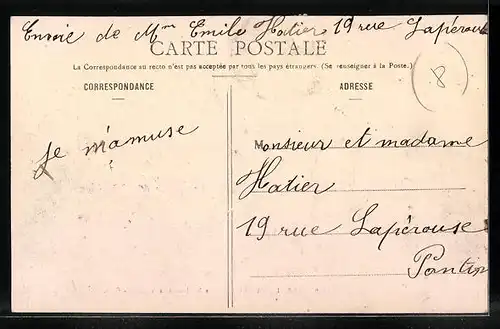 Envoie de Mme Emile Hatier 19 rue Lapérouse
CARTE POSTALE
La Correspondance au recto n'est pas acceptée par tous les pays étrangers. (Se renseigner à la Poste.)
8
CORRESPONDANCE
ADRESSE
je m'amuse
Monsieur et madame
Hatier
19 rue Lapérouse
Pantin